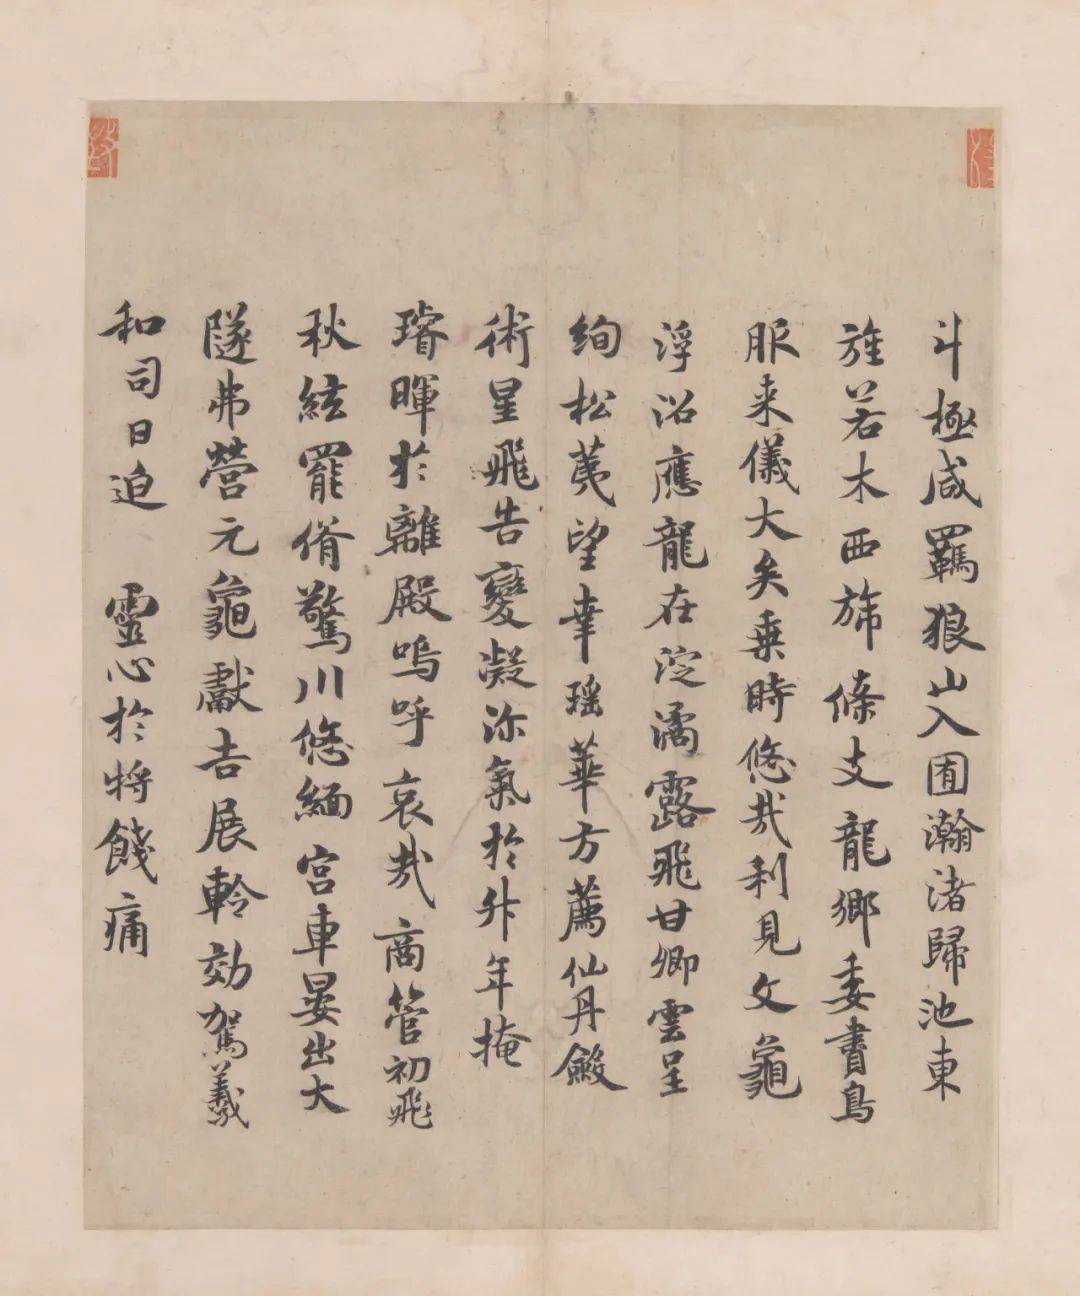 斗極咸羈狼山入囿瀚渚歸池東
旌若木西旆條支龍鄉委賮鳥
服来儀大矣乗時悠哉利見文龜
浮沼應龍在淀潏露飛甘卿雲呈
絢松荑望幸瑶華方薦仙丹斂
術星飛告變凝沴氣於升年掩
璿暉於離殿嗚呼哀哉商管初飛
秋絃罷脩驚川悠緬宮車晏出大
隧弗營元龜獻吉展軨効駕羲
和司日迫 靈心於将餞痛